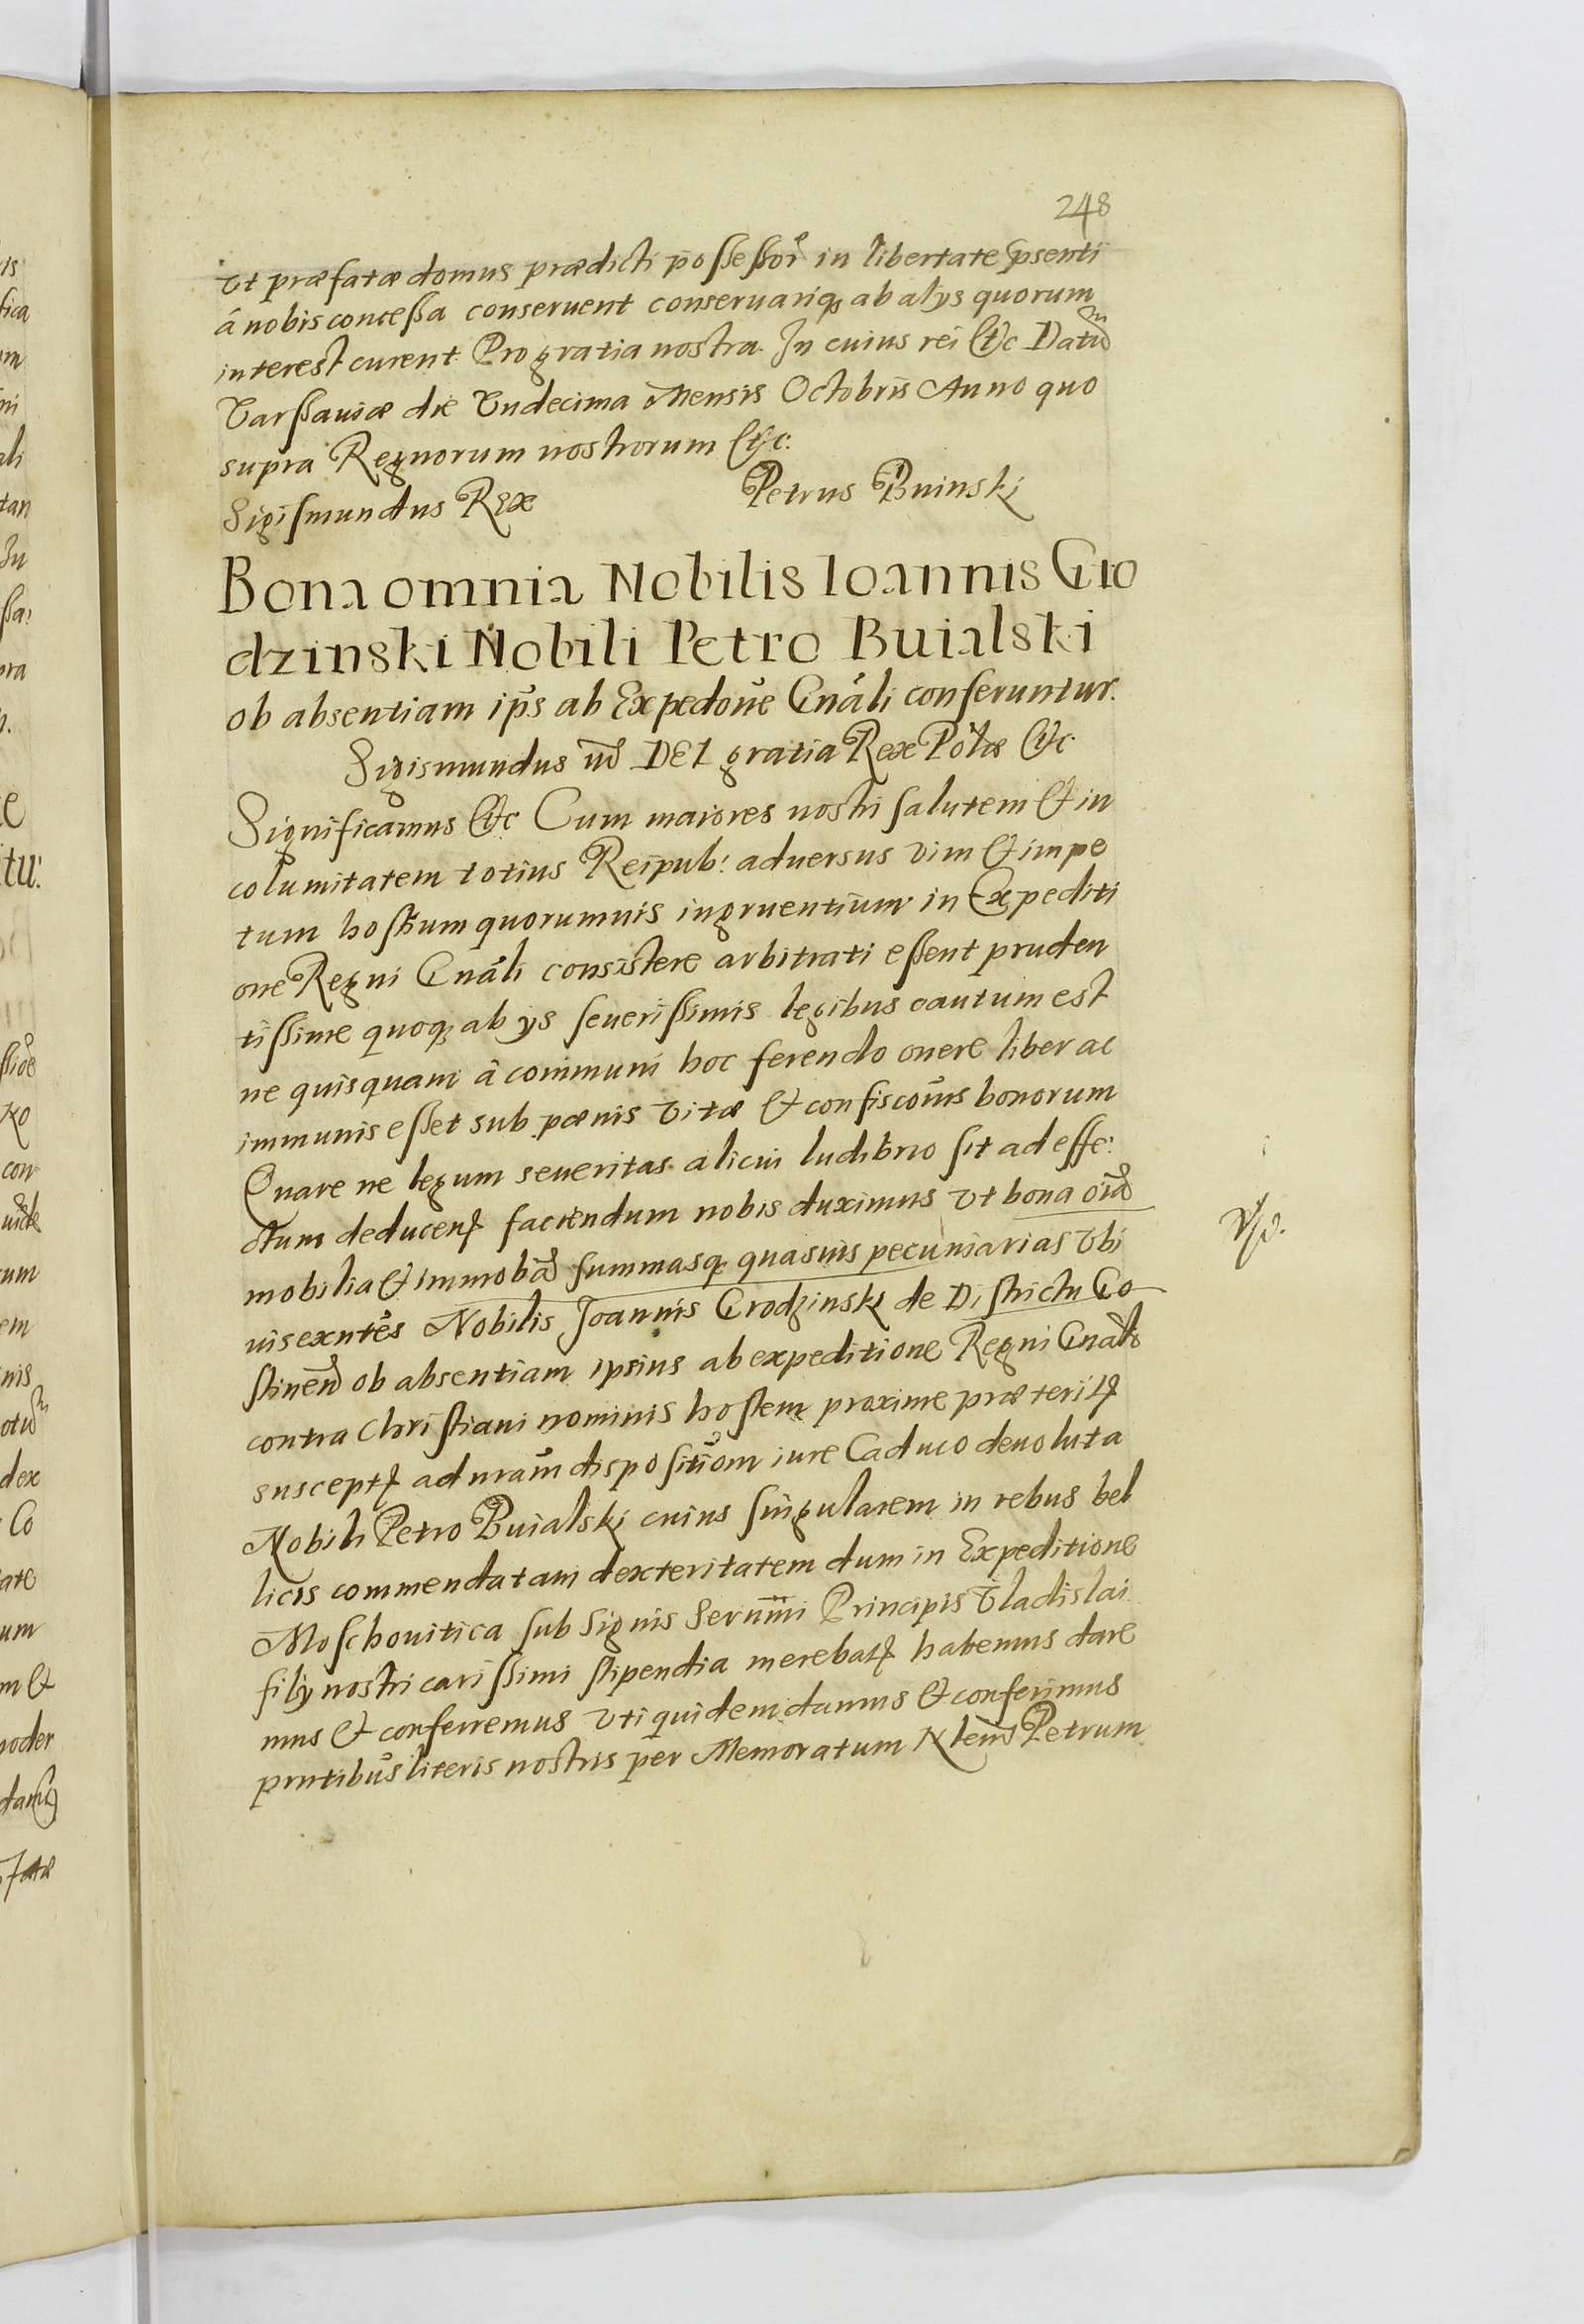 248
vt præfatæ domus prædicti possessore in libertate psenti
á nobis concessa conseruent conseruariq; ab alys quorum
interest curent. Pro gratia nostra. In cuius rei etc Datum
Varssauiæ die Vndecima Mensis Octobris Anno quo
supra Regnorum nostrorum etc:
Sigismundus Rex Petrus Buinski
Bona omnia Nobilis Ioannis Gro
dzinski Nobili Petro Buialski
ob absentiam ips ab Expedone Gnáli conferuntur.
Sigismundus iii DEI gratia Rex Polæ etc.
Significamus etc Cum maiores nostri salutem et in
columitatem totius Reipub: aduersus vim et impe
tum hostium quorumuis ingruentium in Expediti
one Regni Gnáli consistere arbitrati essent pruden
tissime quoq; ab ys seuerissimis legibus cautum est
ne quisquam á communi hoc ferendo onere liber ac
immunis esset sub pænis vitæ et confisconis bonorum
Quare ne legum seueritas alicui ludibrio sit ad effe:
ctum deducent faciendum nobis duximus vt bona oia
mobilia et immoba summasq; quasuis pecuniarias vbi
uis exntes Nobilis Joannis Grodzinski de Districtu Go
stinen ob absentiam ipsius ab expeditione Regni Gnali
contra Christiani nominis hostem proxime præterit
suscept ad nram dispositiom iure Caduco deuoluta
Nobili Petro Buialski cuius singularem in rebus bel
licis commendatam dexteritatem dum in Expeditione
Moschouitica sub signis Sernmi Principis Vladislai
fily nostri carissimi stipendia merebat habemus dare
mus et conferremus vti quidem damus et conferimus
prntibus literis nostris per Memoratum Nlem Petrum